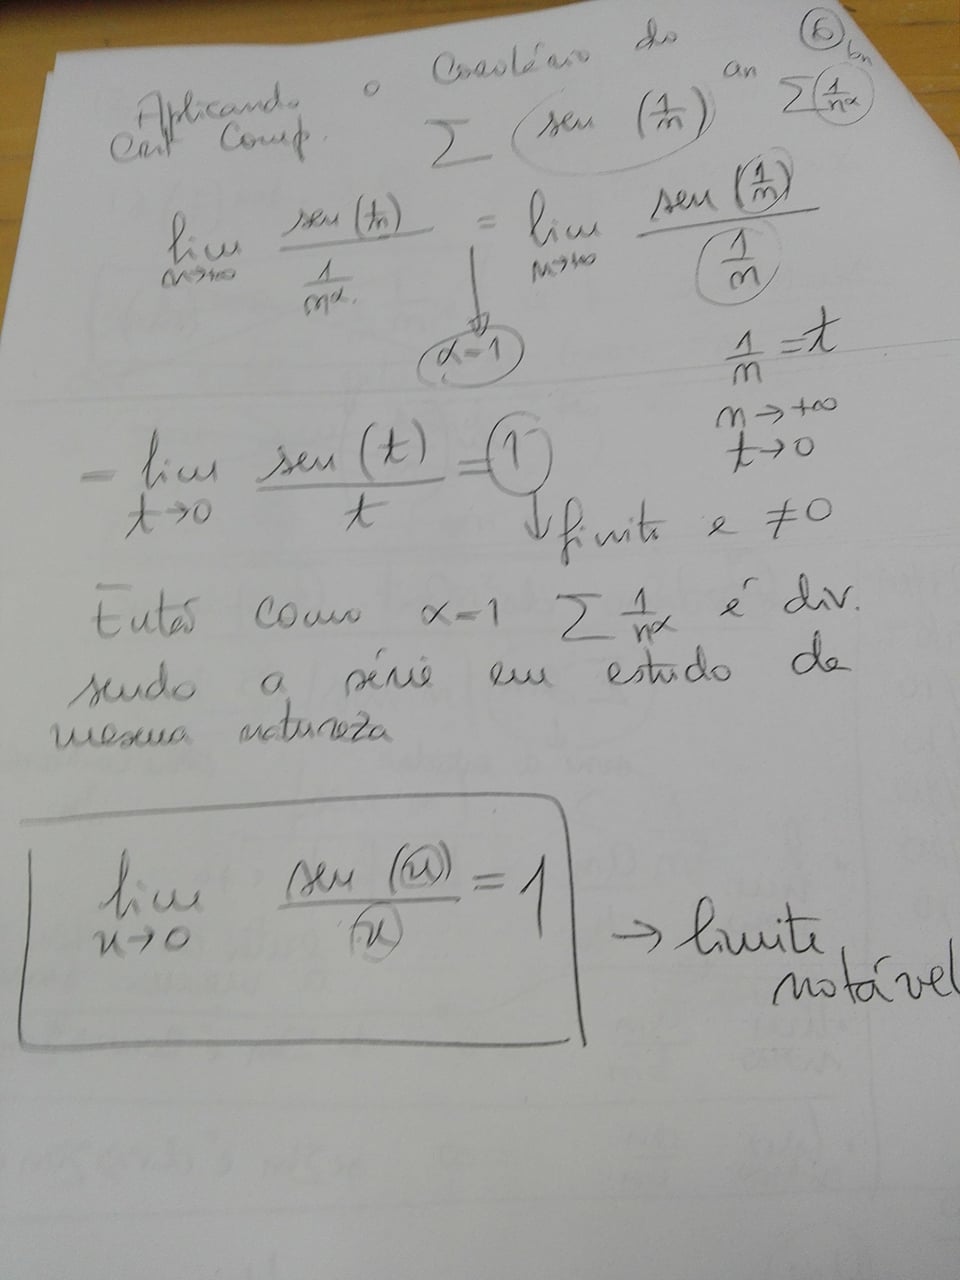 Aplicando o Corolário do 6
Crit Comp. ∑ sen (1/n) an ∑ 1/n^α bn
lim n→+∞ sen(1/n) / (1/n^α) = lim n→+∞ sen(1/n) / (1/n)
α=1
1/n = t
n→+∞
t→0
= lim t→0 sen(t)/t = 1
finito e ≠0
Então como α=1 ∑ 1/n^α é div.
sendo a série em estudo de
mesma natureza
lim u→0 sen(u)/u = 1 → limite
notável